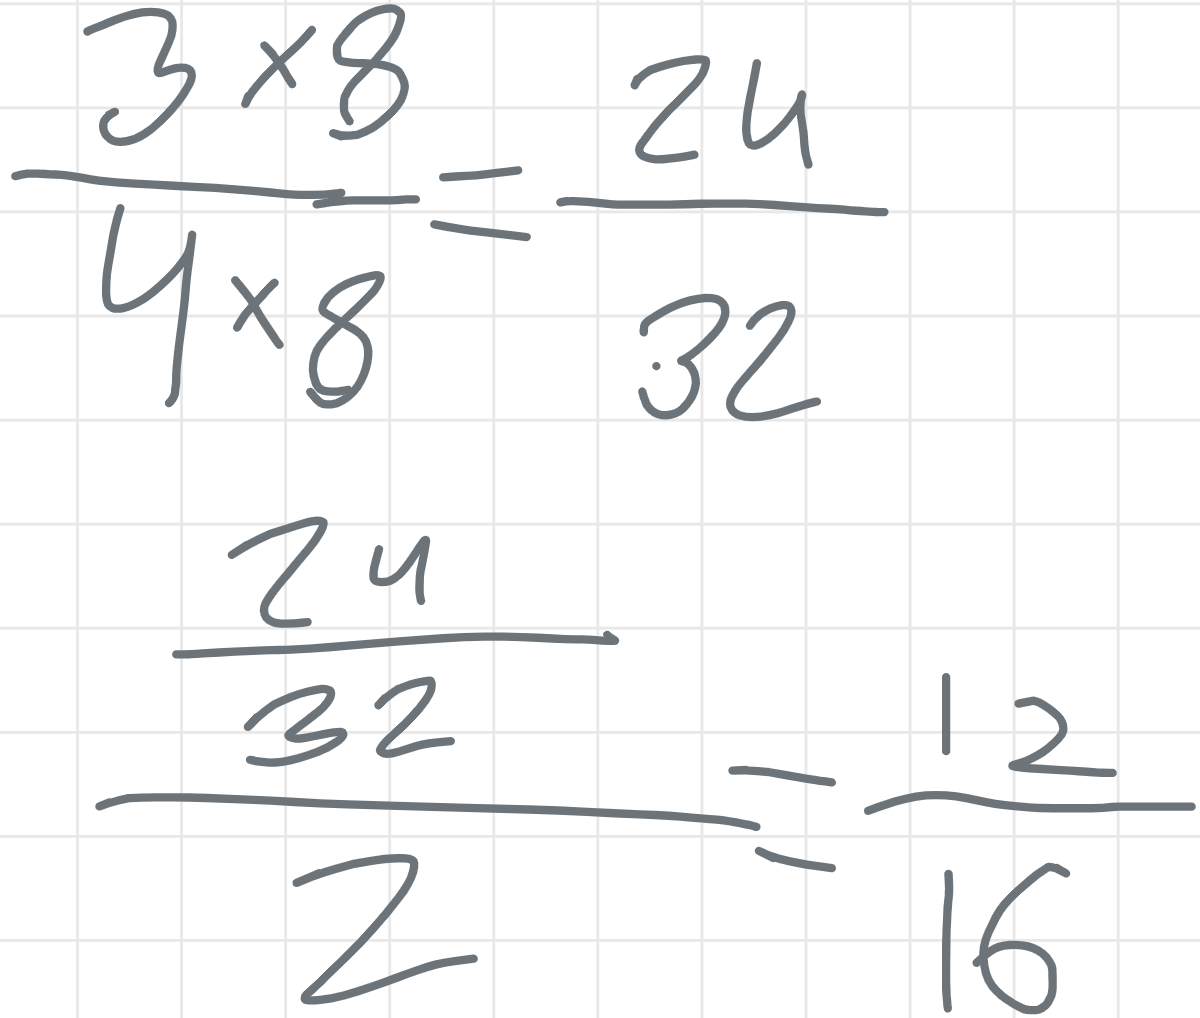 3 × 8 / 4 × 8 = 24 / 32
24 / 32 / 2 = 12 / 16